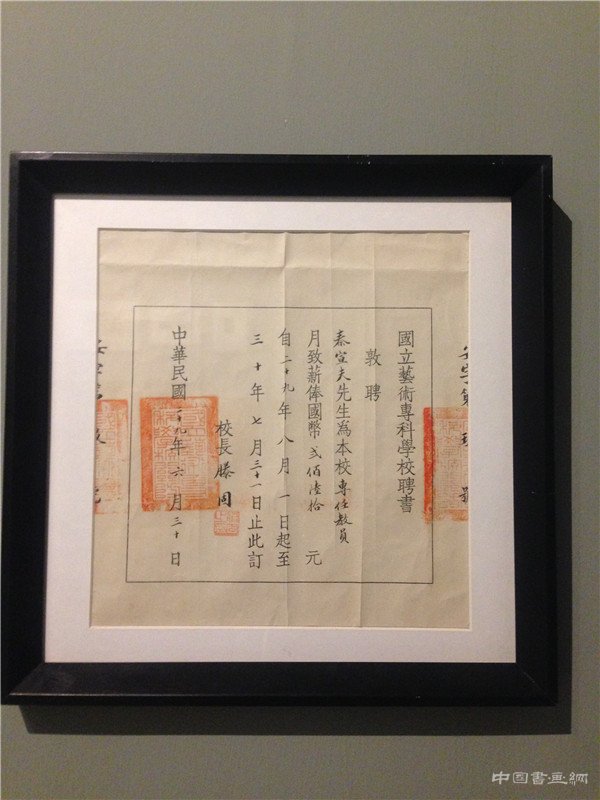 國立藝術專科學校聘書
敦聘
秦宣夫先生為本校專任教員
月致薪俸國幣弍佰陸拾元
自二十九年八月一日起至
三十年七月三十一日止此訂
校長滕固
中華民國二十九年六月三十日
中国書画網